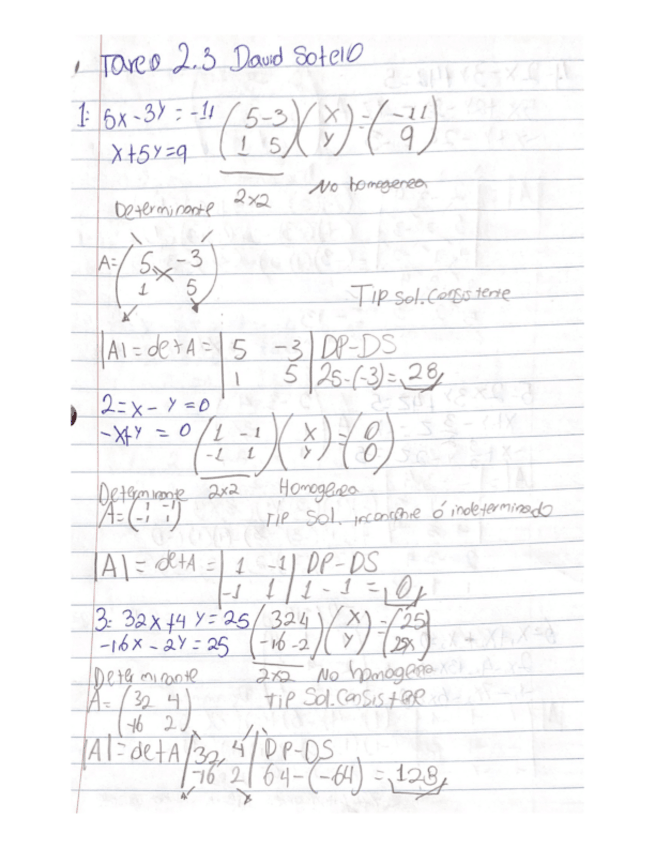 Tarea 2.3 David Sotelo
1: 5x-3y=-11 (5 -3) (x) = (-11)
x+5y=9 (1 5) (y) (9)
2x2 No homogenea
Determinante
A= (5 -3)
(1 5)
Tip sol. Consistente
|A| = det A = |5 -3| DP-DS
|1 5| 25-(-3)= 28
2= x - y = 0
-x+y = 0 (1 -1) (x) = (0)
(-1 1) (y) (0)
Determinante 2x2 Homogenea
A=(1 -1)
(-1 1) Tip Sol. inconsistente ó indeterminado
|A| = det A = |1 -1| DP-DS
|-1 1| 1 - 1 = 0
3: 32x+4y=25 (32 4) (x) = (25)
-16x-2y=25 (-16 -2) (y) (25)
Determinante 2x2 No homogenea
A= (32 4) Tip Sol. Consistente
(-16 2)
|A| = det A |32 4| DP-DS
|-16 2| 64-(-64) = 128